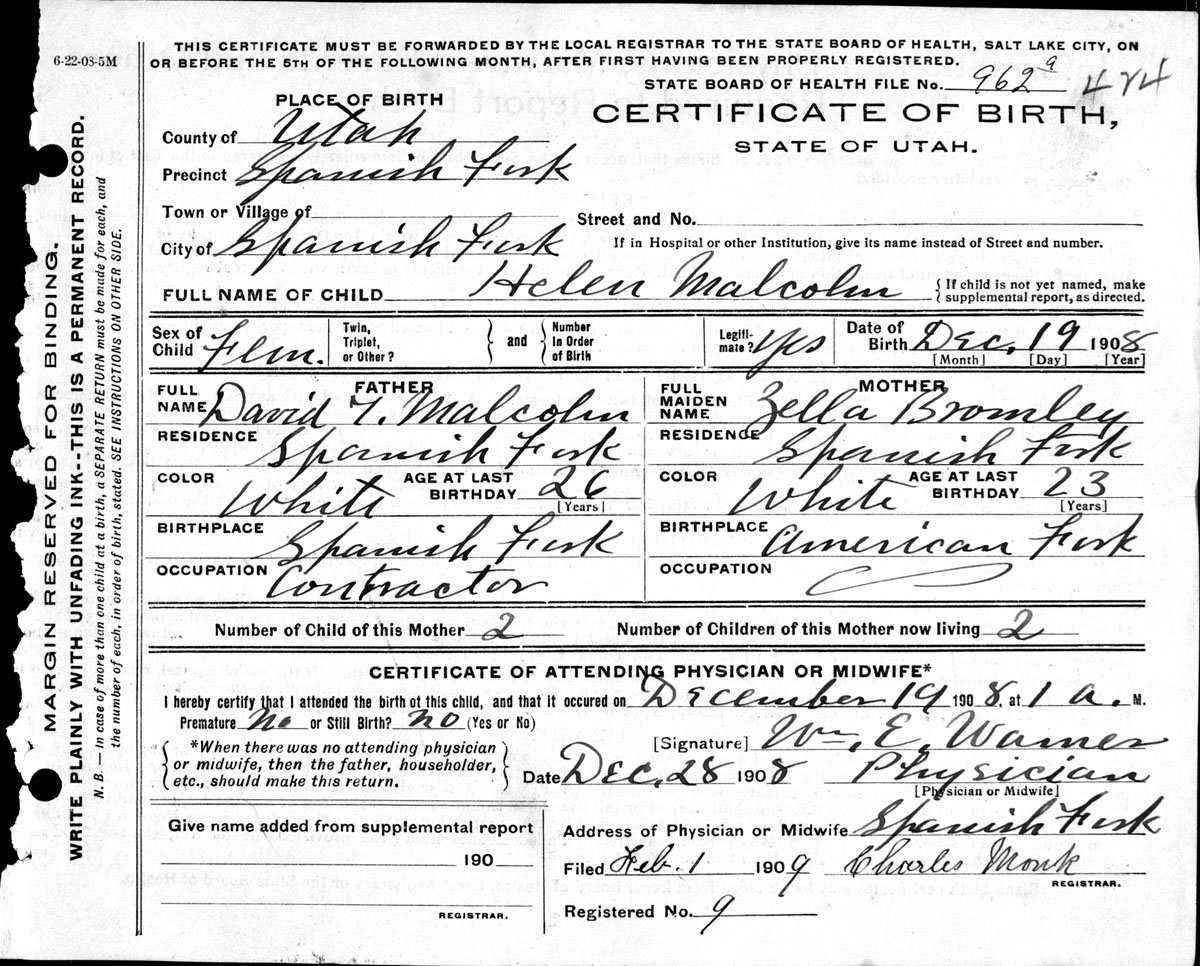 6-22-08-5M
THIS CERTIFICATE MUST BE FORWARDED BY THE LOCAL REGISTRAR TO THE STATE BOARD OF HEALTH, SALT LAKE CITY, ON
OR BEFORE THE 5TH OF THE FOLLOWING MONTH, AFTER FIRST HAVING BEEN PROPERLY REGISTERED.
STATE BOARD OF HEALTH FILE No. 962 a 424
PLACE OF BIRTH
CERTIFICATE OF BIRTH,
STATE OF UTAH.
County of Utah
Precinct Spanish Fork
Town or Village of
Street and No.
City of Spanish Fork
If in Hospital or other Institution, give its name instead of Street and number.
FULL NAME OF CHILD Helen Malcolm
{ If child is not yet named, make
supplemental report, as directed.
Sex of Child Fem.
Twin, Triplet, or Other?
} and {
Number in Order of Birth
Legiti-mate? yes
Date of Birth Dec. 19 1908
[Month] [Day] [Year]
FATHER
FULL NAME David T. Malcolm
RESIDENCE Spanish Fork
COLOR White
AGE AT LAST BIRTHDAY 26
[Years]
BIRTHPLACE Spanish Fork
OCCUPATION Contractor
MOTHER
FULL MAIDEN NAME Zella Bromley
RESIDENCE Spanish Fork
COLOR White
AGE AT LAST BIRTHDAY 23
[Years]
BIRTHPLACE American Fork
OCCUPATION
Number of Child of this Mother 2
Number of Children of this Mother now living 2
CERTIFICATE OF ATTENDING PHYSICIAN OR MIDWIFE*
I hereby certify that I attended the birth of this child, and that it occured on December 19 1908. at 1 a. M.
Premature No or Still Birth? no (Yes or No)
{ *When there was no attending physician
or midwife, then the father, householder,
etc., should make this return. }
[Signature] Wm. E. Warner
Date Dec. 28 1908 Physician
[Physician or Midwife]
Give name added from supplemental report
190
REGISTRAR.
Address of Physician or Midwife Spanish Fork
Filed Feb. 1 1909 Charles Monk
REGISTRAR.
Registered No. 9
MARGIN RESERVED FOR BINDING.
WRITE PLAINLY WITH UNFADING INK--THIS IS A PERMANENT RECORD.
N. B. — In case of more than one child at a birth, a SEPARATE RETURN must be made for each, and
the number of each, in order of birth, stated. SEE INSTRUCTIONS ON OTHER SIDE.